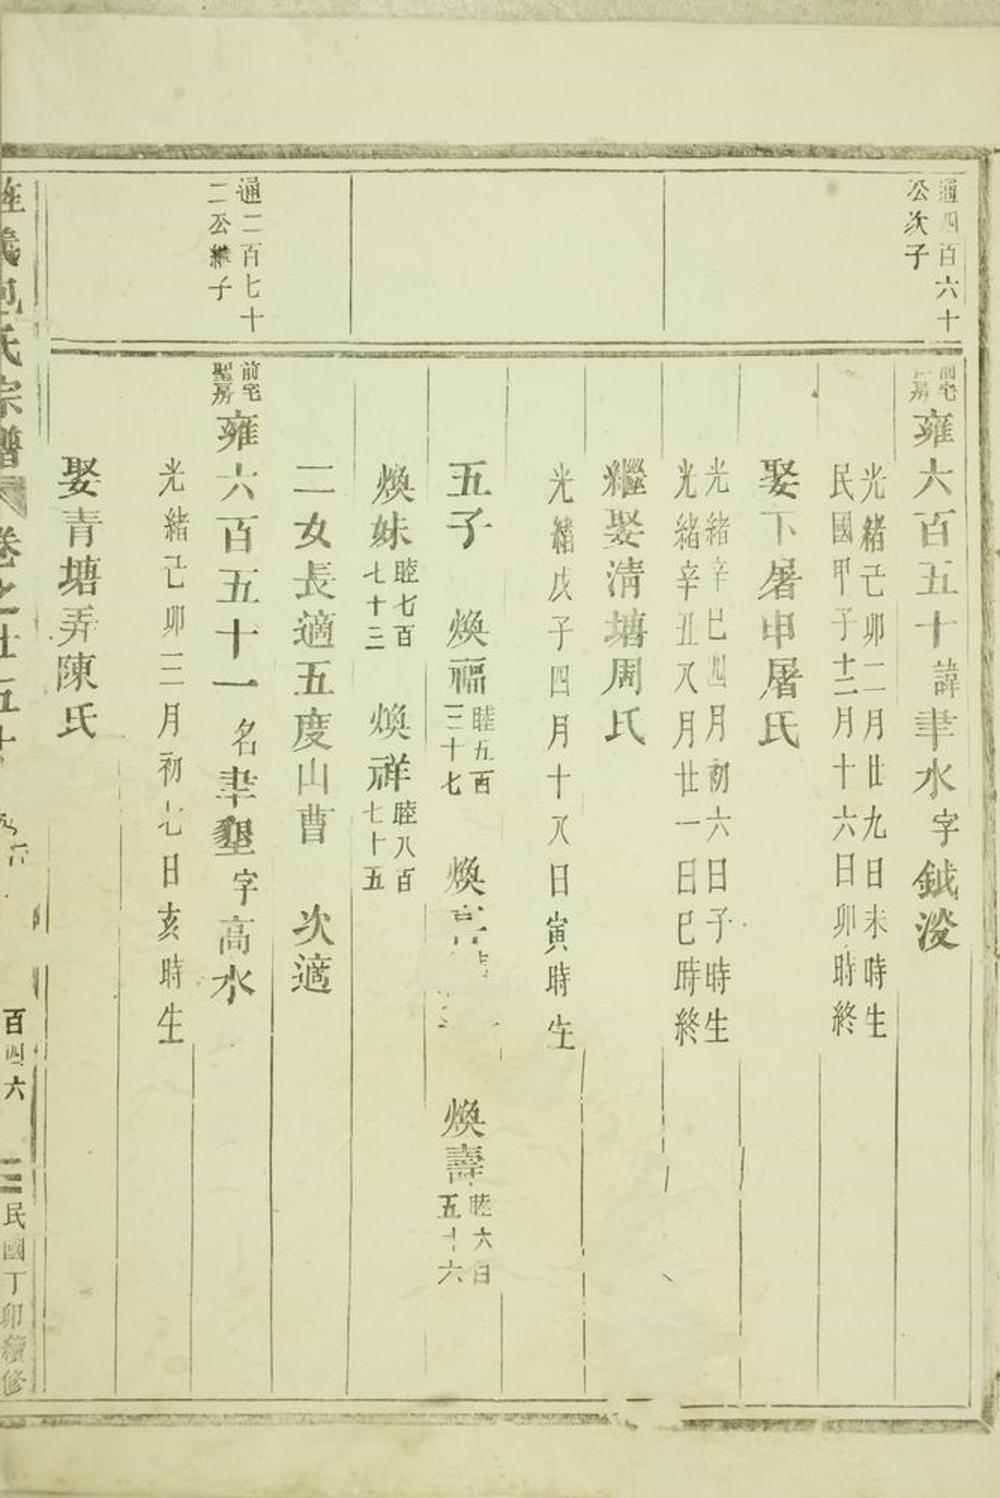 通四百六十
公次子
前宅
房
雍六百五十諱聿水字鉞淩
光緒己卯二月廿九日未時生
民國甲子十二月十六日卯時終
娶下屠申屠氏
光緒辛巳四月初六日子時生
光緒辛丑八月廿一日巳時終
繼娶清塘周氏
光緒戊子四月十八日寅時生
五子 煥福
睦五百
三十七
煥
煥壽
睦六百
五十六
煥妹
睦七百
七十三
煥祥
睦八百
七十五
二女長適五度山曹 次適
通二百七十
二公繼子
前宅
聖房
雍六百五十一名聿墾字高水
光緒己卯三月初七日亥時生
娶青塘弄陳氏
氏宗譜
卷之廿五
百四六
民國丁卯續修